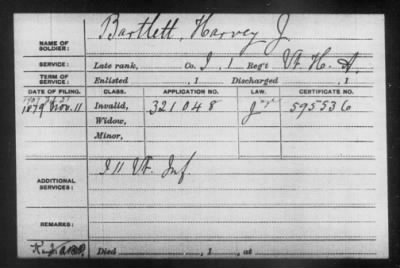 NAME OF SOLDIER: Bartlett, Harvey J.
SERVICE: Late rank, Co. I, 1 Reg't Vt. H. A.
TERM OF SERVICE: Enlisted , 1 Discharged , 1
DATE OF FILING. CLASS. APPLICATION NO. LAW. CERTIFICATE NO.
1879 Nov. 11 Invalid, 321048 595536
Widow,
Minor,
ADDITIONAL SERVICES: I 11 Vt. Inf.
REMARKS:
Died , 1 , at